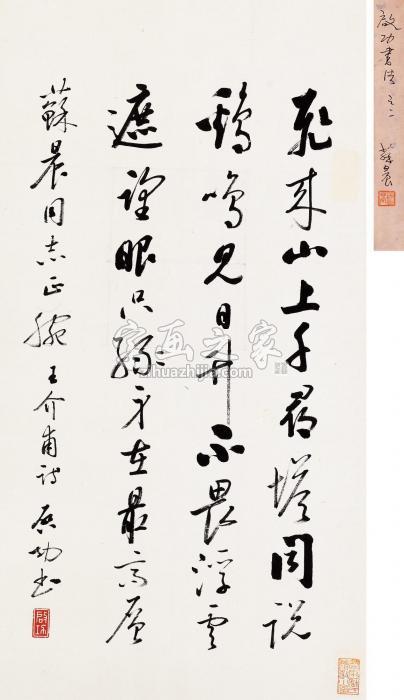 飛来山上千尋塔聞説
鷄鳴見日升不畏浮雲
遮望眼只緣身在最高層
蘇晨同志正腕 王介甫詩 啟功書
啟功
啟功書法 之二 蘇晨
字画之家
zihuazhijia.com